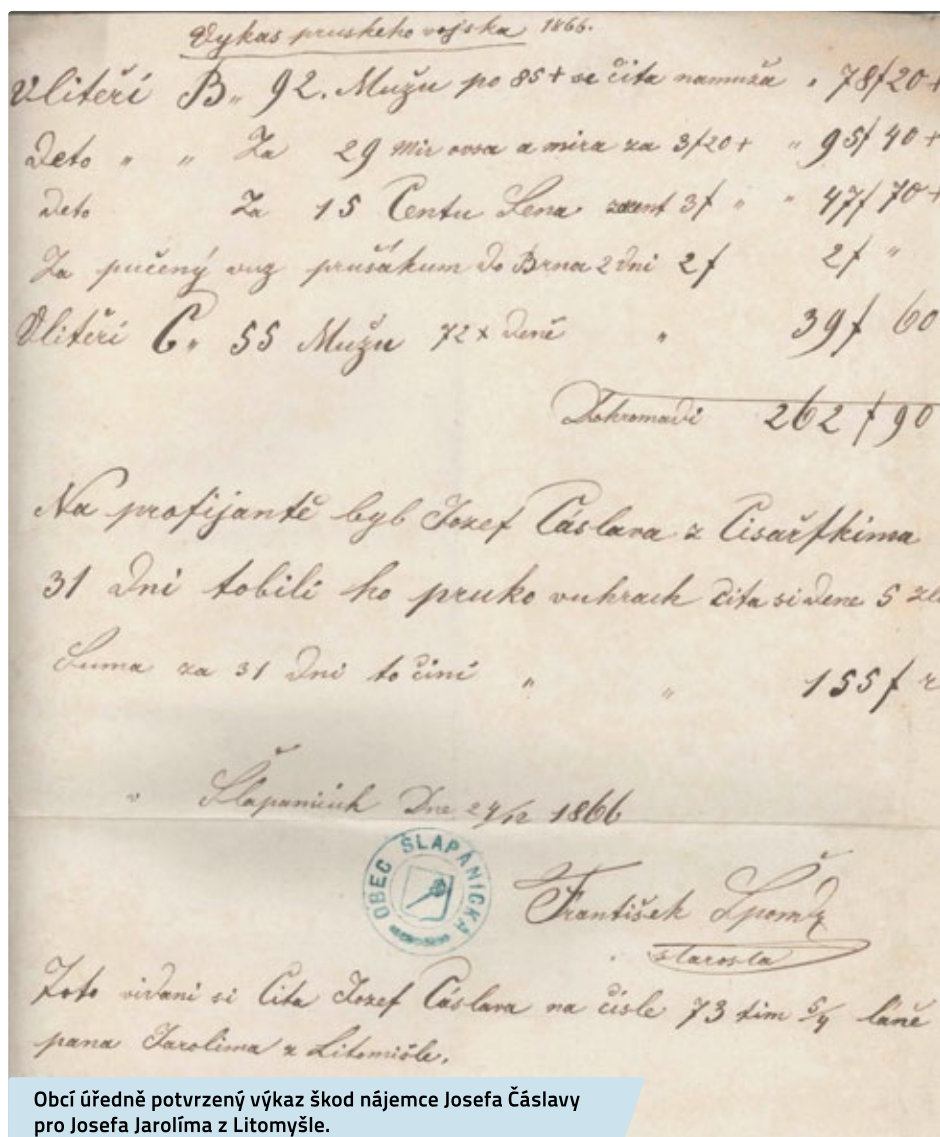 Vykas pruskeho vojska 1866.
Vlitěři B„ 92. Mužu po 85 + se čita namuža „ 78f 20+
Deto „ „ Za 29 Mir ovsa a mira za 3f20+ „ 95f 40+
deto Za 15 Centu Sena 3f „ „ 47f 70+
Za pučený vuz prušákum do Brna 2 dni 2f 2f „
Vlitěři C„ 55 Mužu 72 x deně „ 39f 60
Dohromadi 262f 90
Na profijantě byl Jozef Čáslava z Cisařskima
31 Dni tobili ho pruko vuhrach čita si dene 5 zl
Suma za 31 Dni to činí „ „ 155f
v Šlapanicich Dne 24/12 1866
OBEC ŠLAPANICKÁ
František
starosta
Toto vidani si Čita Jozef Čáslava na čisle 73 tim 5/4 láně
pana Jarolima z Litomišle.
Obcí úředně potvrzený výkaz škod nájemce Josefa Čáslavy
pro Josefa Jarolíma z Litomyšle.